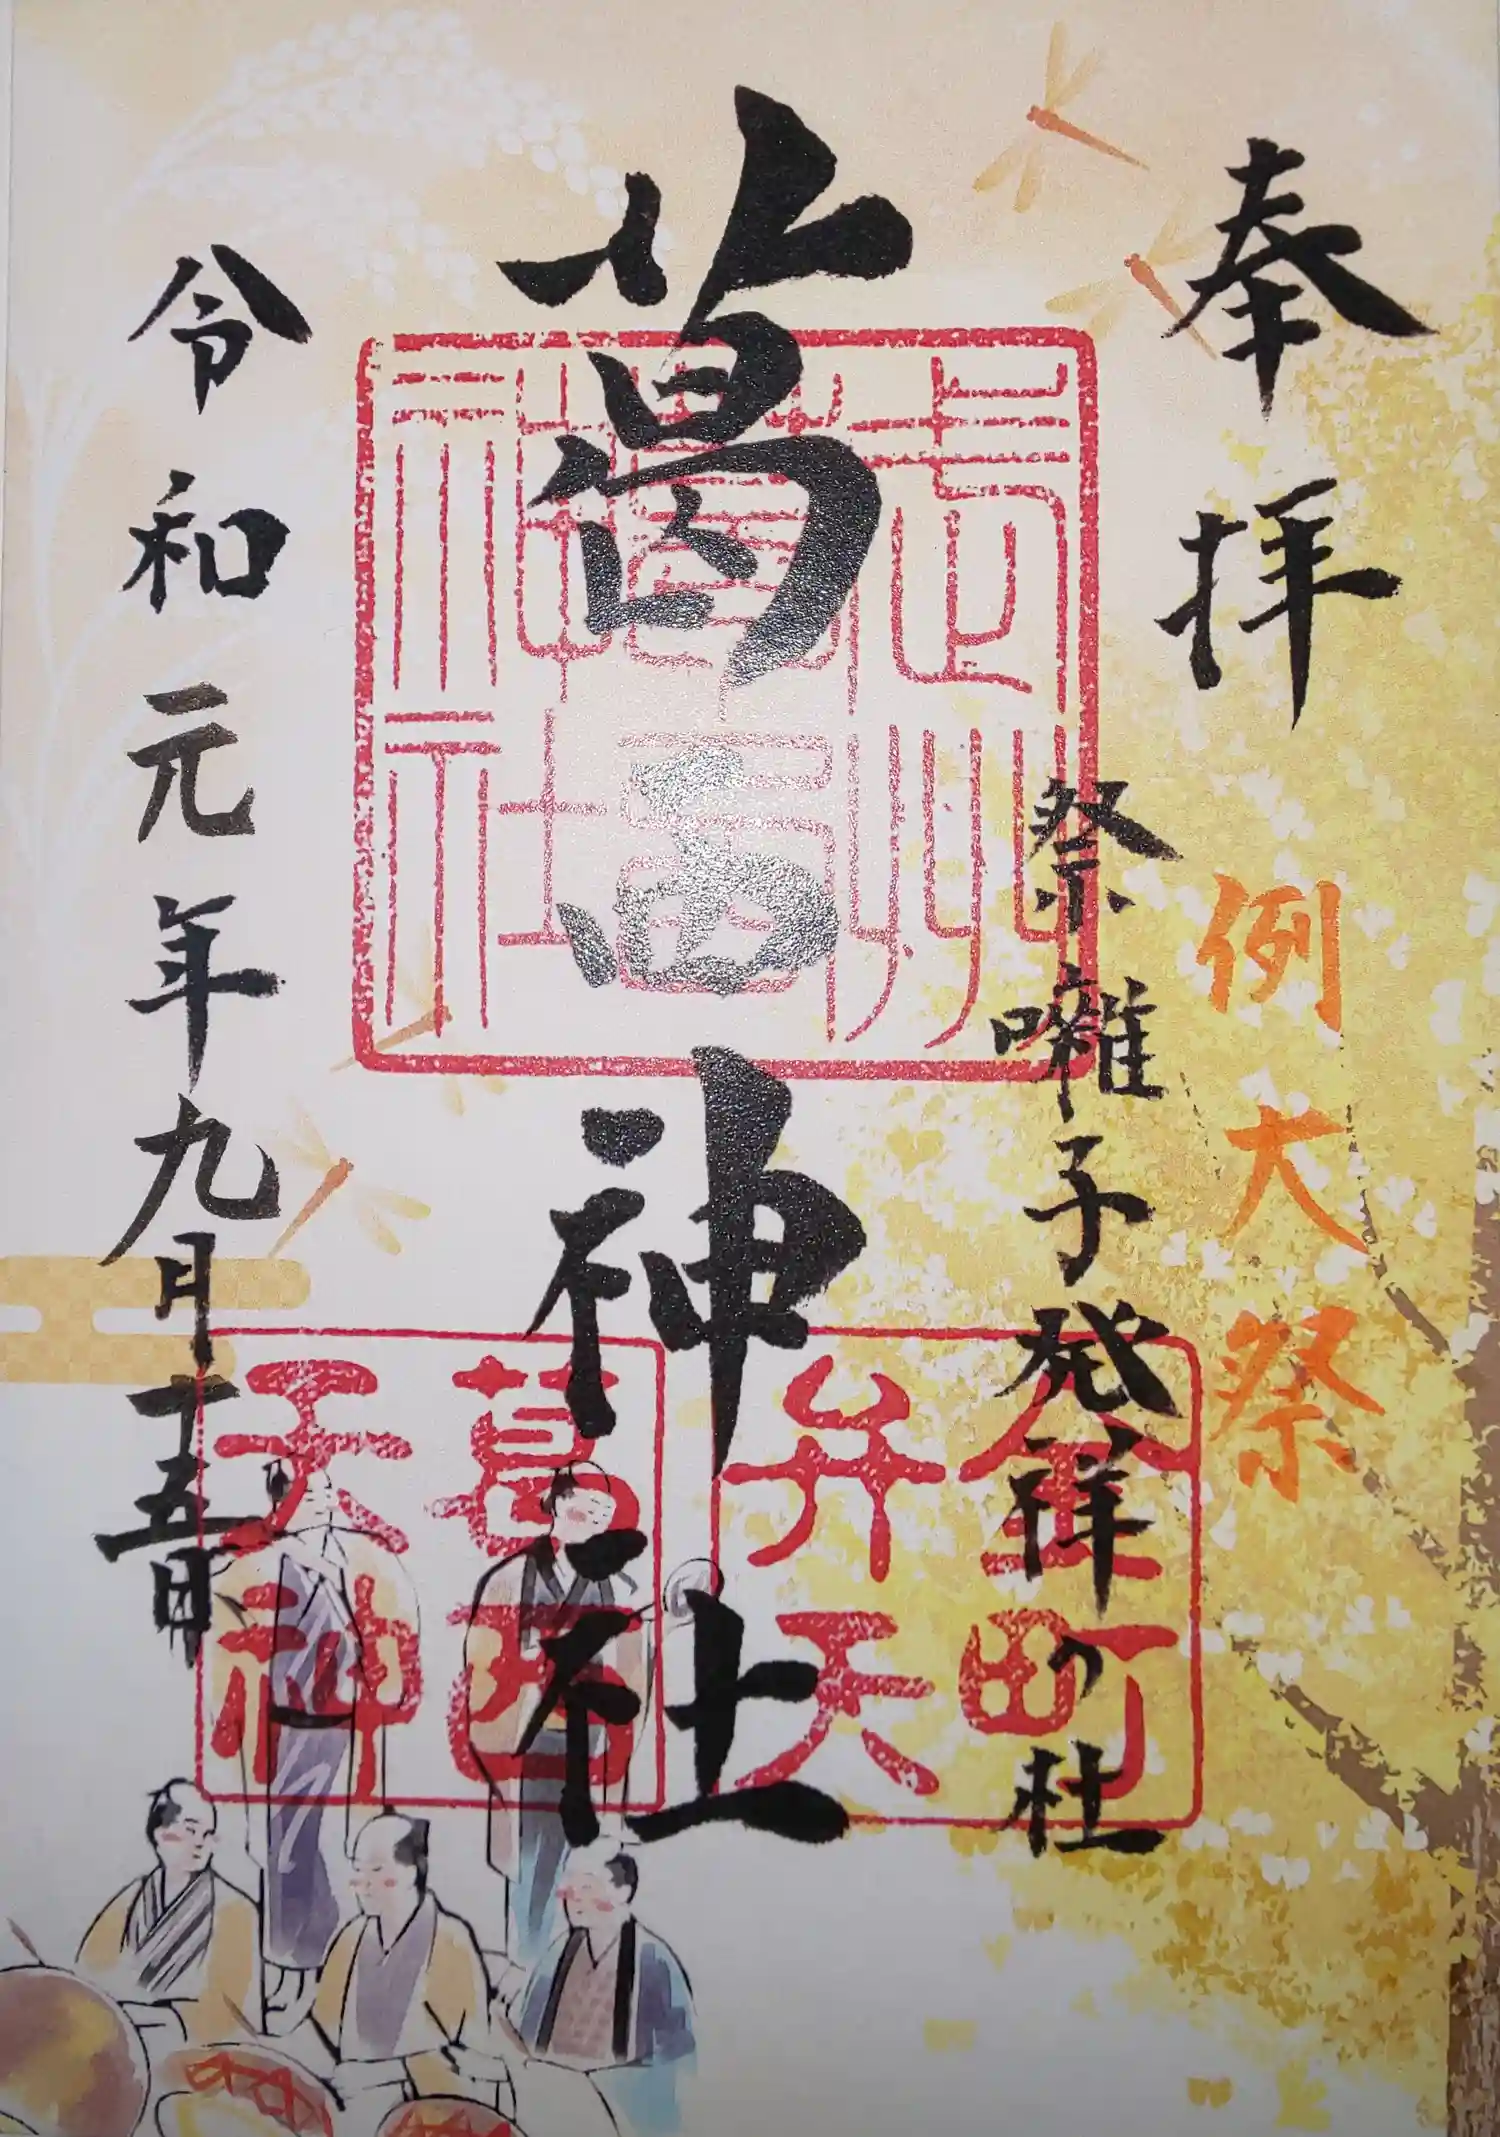 奉拝
例大祭
祭囃子発祥の杜
葛西神社
令和元年九月十五日
金町
弁天
葛西
天神